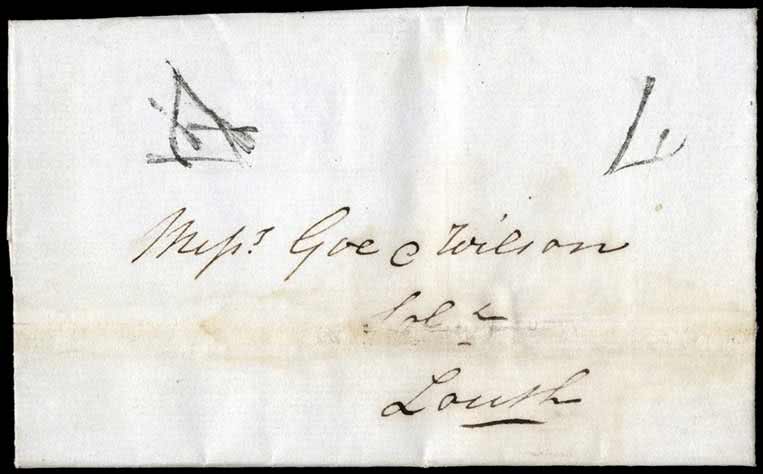 Messrs Goe & Wilson
Solrs
Louth